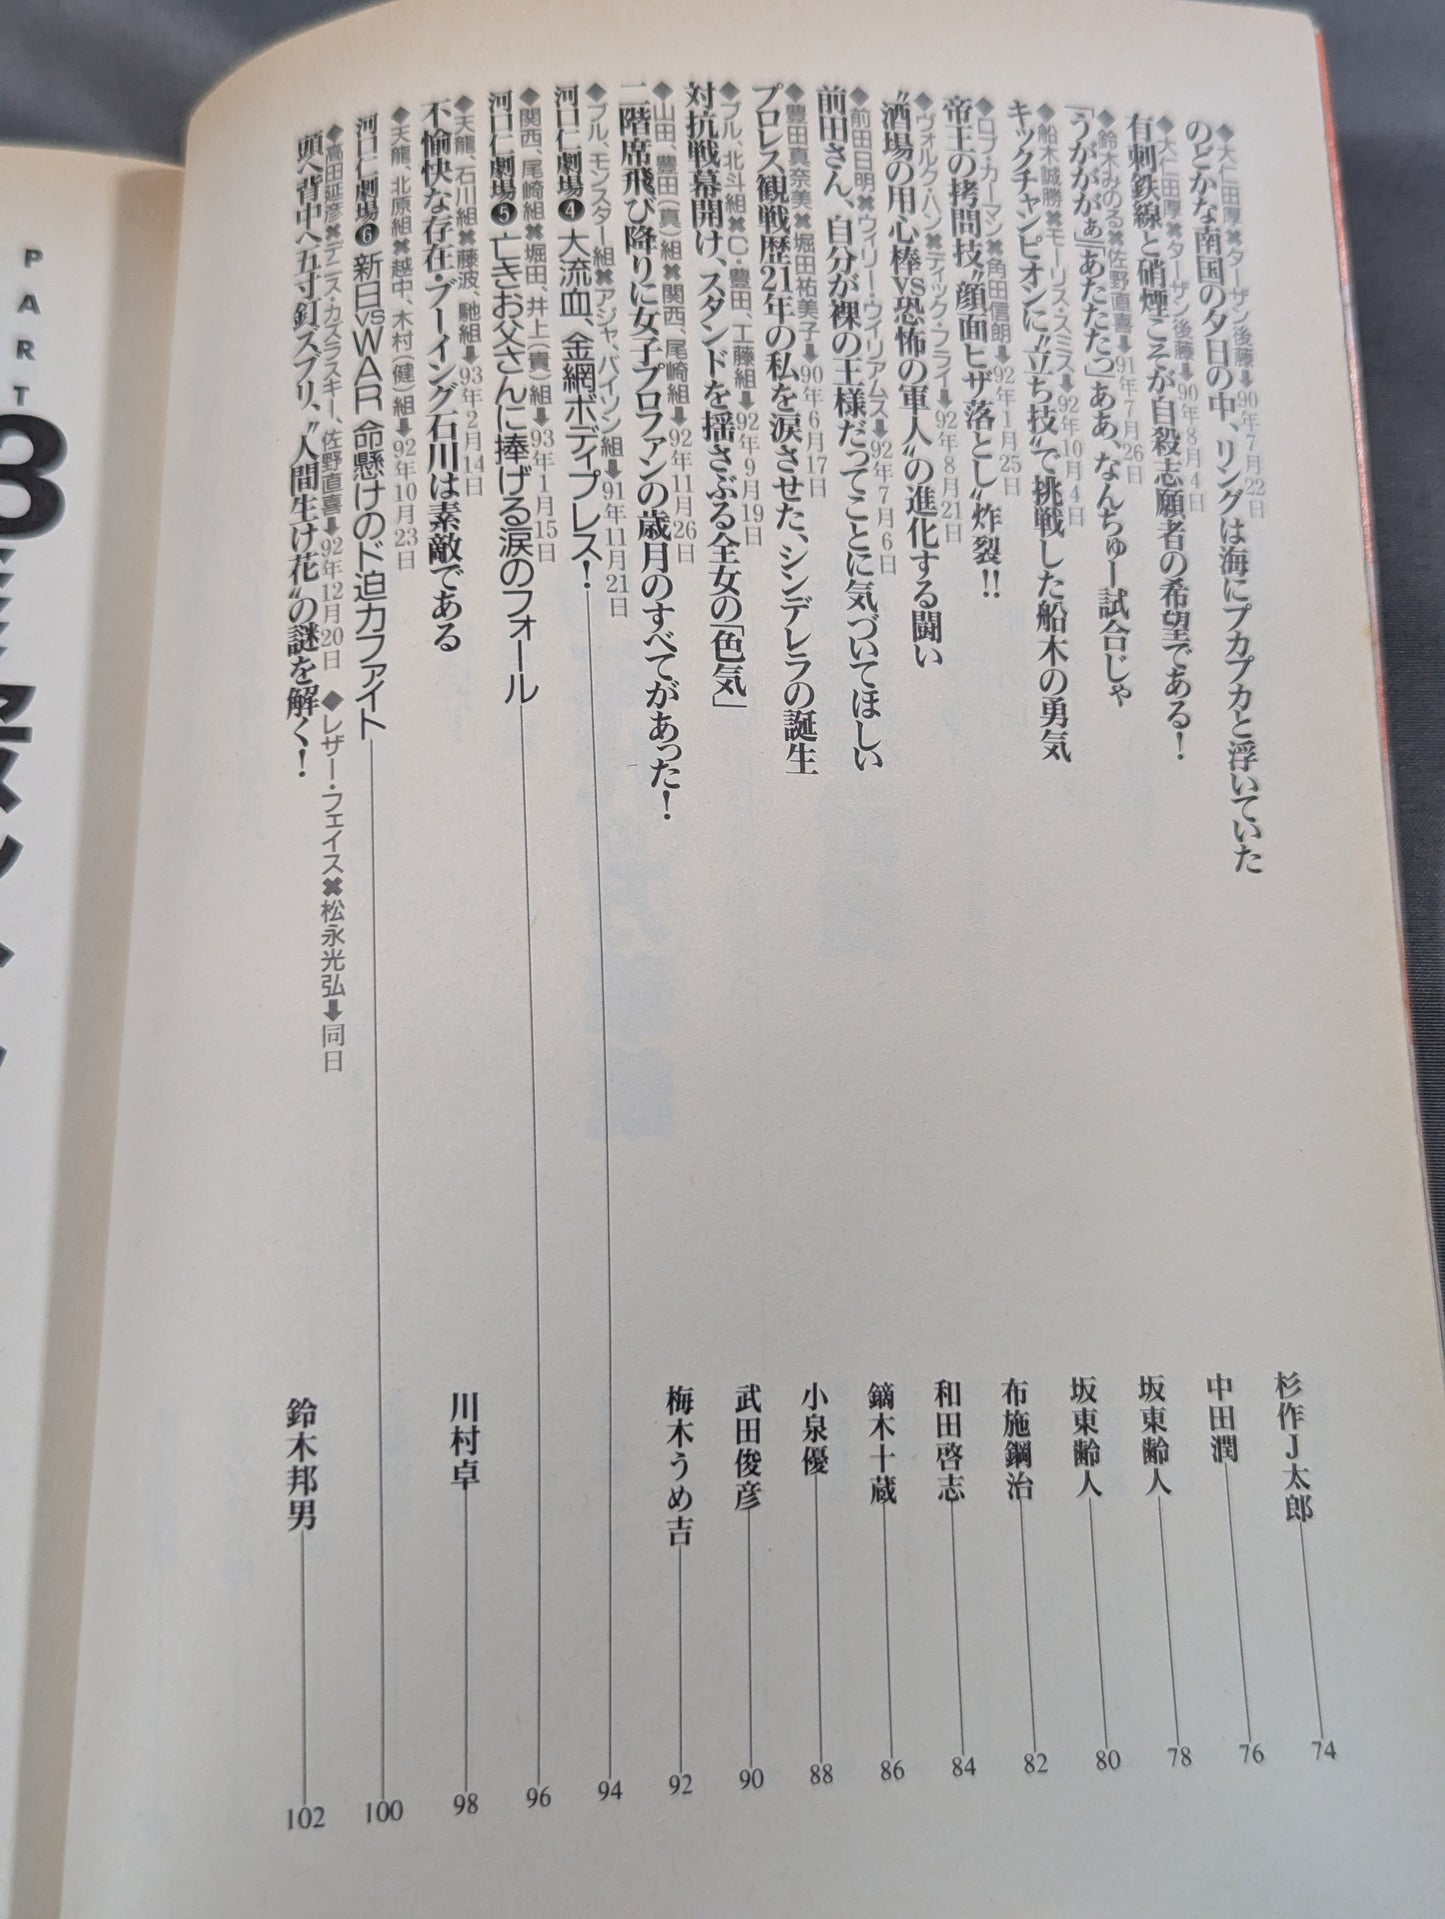 ◆大仁田厚✖ターザン後藤➡90年7月22日
のどかな南国の夕日の中、リングは海にプカプカと浮いていた
杉作J太郎
74
◆大仁田厚✖ターザン後藤➡90年8月4日
有刺鉄線と硝煙こそが自殺志願者の希望である!
中田潤
76
◆鈴木みのる✖佐野直喜➡91年7月26日
「うがががぁ」「あたたたっ」ああ、なんちゅー試合じゃ
坂東齢人
78
◆船木誠勝✖モーリス・スミス➡92年10月4日
キックチャンピオンに“立ち技”で挑戦した船木の勇気
坂東齢人
80
◆ロブ・カーマン✖角田信朗➡92年1月25日
帝王の拷問技“顔面ヒザ落とし”炸裂!!
布施鋼治
82
◆ヴォルク・ハン✖ディック・フライ➡92年8月21日
“酒場の用心棒VS恐怖の軍人”の進化する闘い
和田啓志
84
◆前田日明✖ウィリー・ウイリアムス➡92年7月6日
前田さん、自分が裸の王様だってことに気づいてほしい
鏑木十蔵
86
◆豊田真奈美✖堀田祐美子➡90年6月17日
プロレス観戦歴21年の私を涙させた、シンデレラの誕生
小泉優
88
◆ブル、北斗組✖C・豊田、工藤組➡92年9月19日
対抗戦幕開け、スタンドを揺さぶる全女の「色気」
武田俊彦
90
◆山田、豊田(真)組✖関西、尾崎組➡92年11月26日
二階席飛び降りに女子プロファンの歳月のすべてがあった!
梅木うめ吉
92
◆ブル、モンスター組✖アジャ、バイソン組➡91年11月21日
河口仁劇場❹ 大流血、金網ボディプレス!
94
◆関西、尾崎組✖堀田、井上(貴)組➡93年1月15日
河口仁劇場❺ 亡きお父さんに捧げる涙のフォール
96
◆天龍、石川組✖藤波、馳組➡93年2月14日
不愉快な存在・ブーイング石川は素敵である
川村卓
98
◆天龍、北原組✖越中、木村(健)組➡92年10月23日
河口仁劇場❻ 新日VSWAR 命懸けのド迫力ファイト
100
◆高田延彦✖デニス・カズラスキー、佐野直喜➡92年12月20日 ◆レザー・フェイス✖松永光弘➡同日
頭へ背中へ五寸釘ズブリ、“人間生け花”の謎を解く!
鈴木邦男
102
PART
3